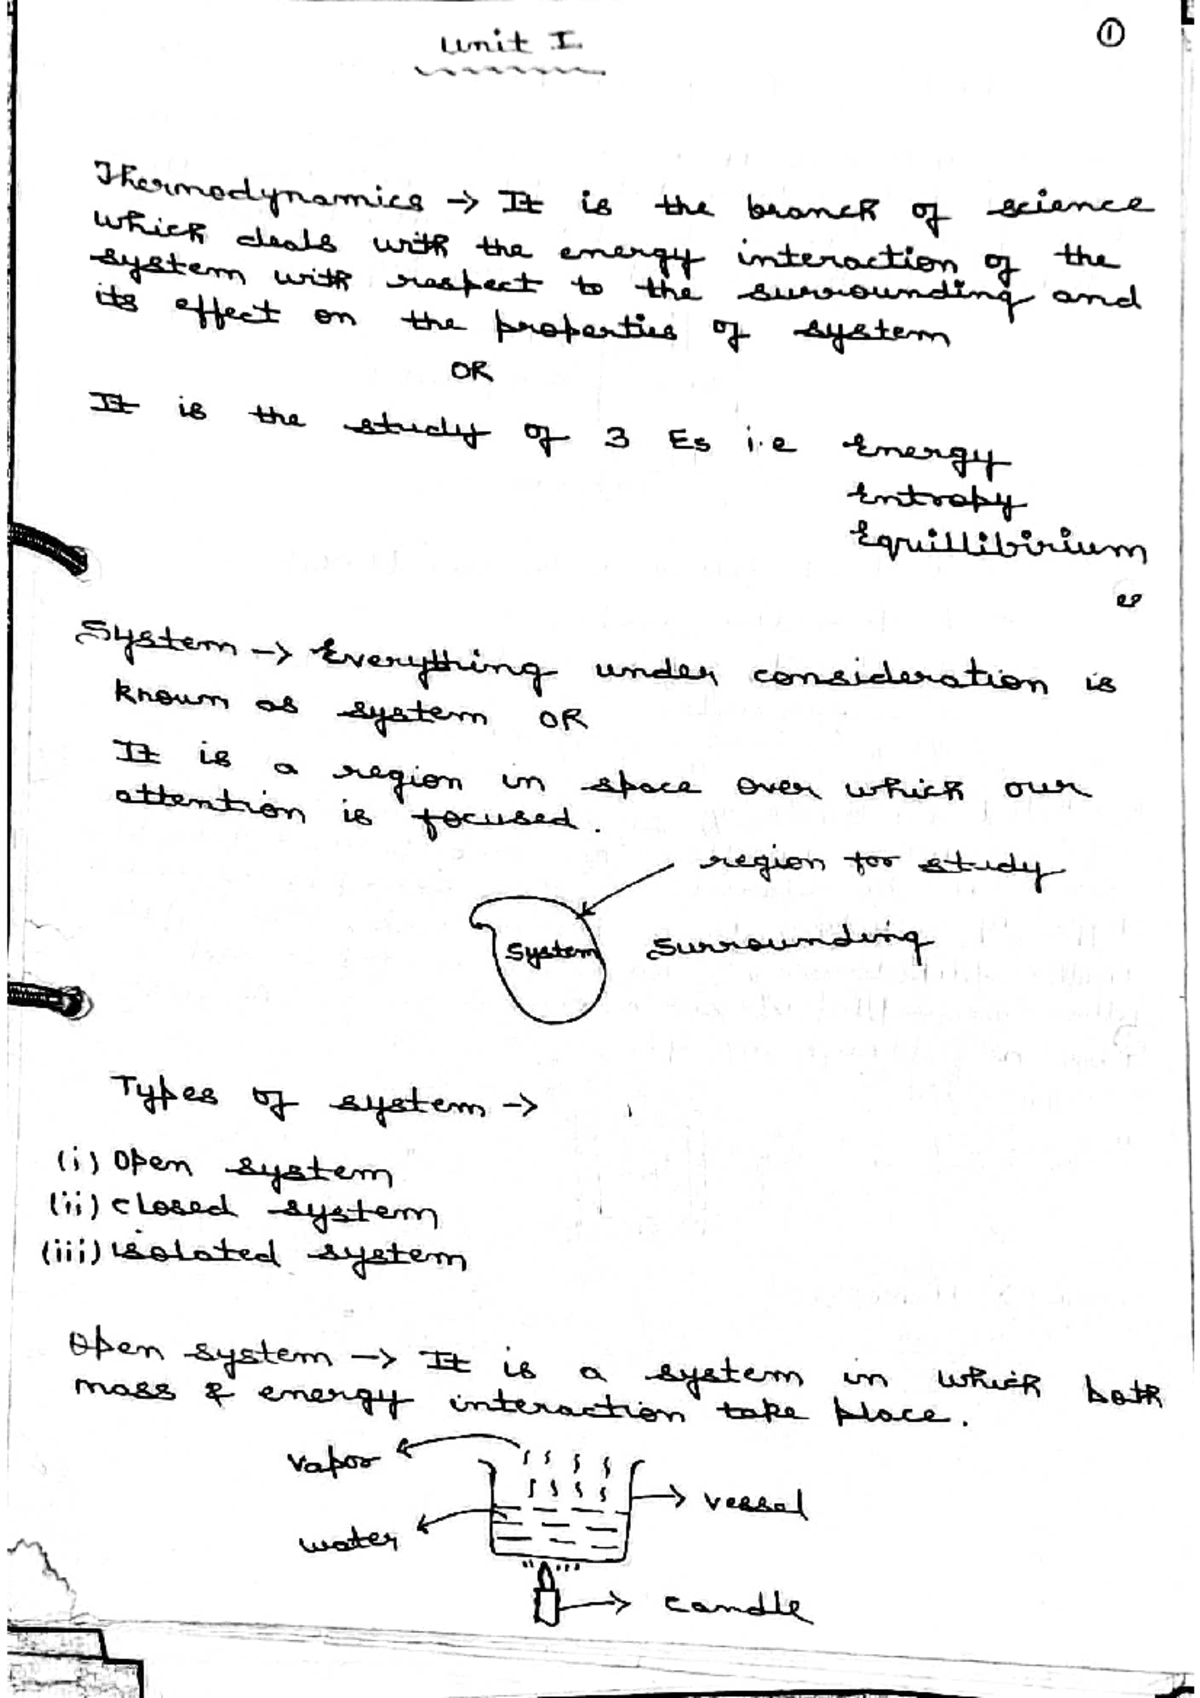 Unit I
①
Thermodynamics → It is the branch of science
which deals with the energy interaction of the
system with respect to the surrounding and
its effect on the properties of system
OR
It is the study of 3 Es i.e Energy
Entropy
Equillibirium
System → Everything under consideration is
known as system OR
It is a region in space over which our
attention is focused.
region for study
System
Surrounding
Types of system →
(i) Open system
(ii) closed system
(iii) isolated system
Open system → It is a system in which both
mass & energy interaction take place.
vapor
vessal
water
candle